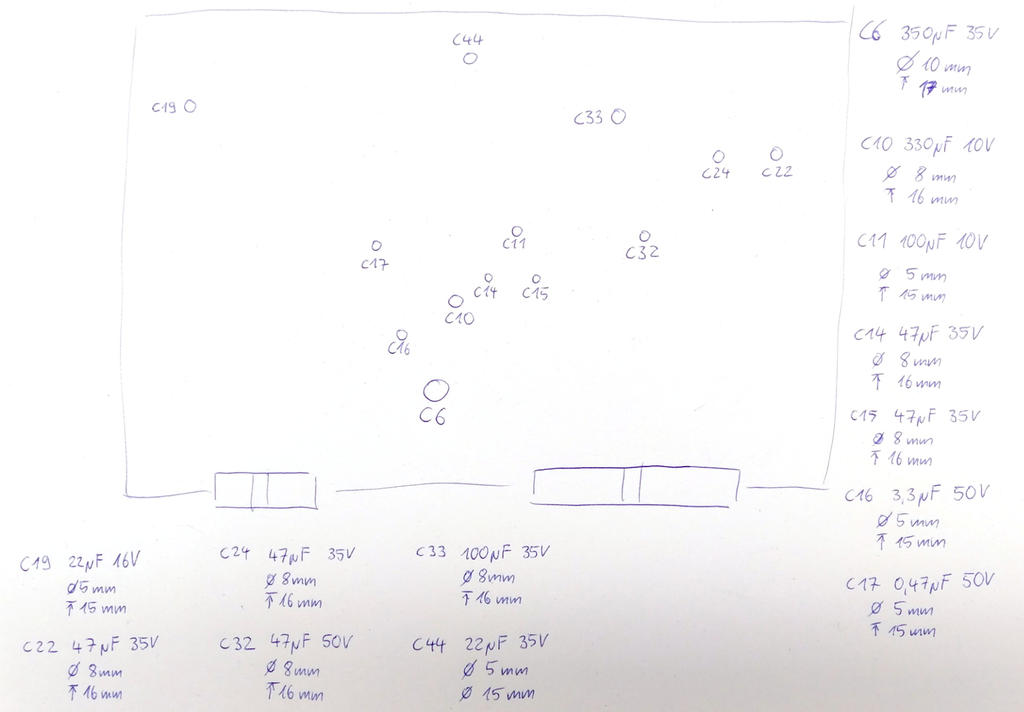 C44
C19
C33
C24 C22
C11
C32
C17
C14 C15
C10
C16
C6
C6 350µF 35V
Ø 10 mm
↑ 17 mm
C10 330µF 10V
Ø 8 mm
↑ 16 mm
C11 100µF 10V
Ø 5 mm
↑ 15 mm
C14 47µF 35V
Ø 8 mm
↑ 16 mm
C15 47µF 35V
Ø 8 mm
↑ 16 mm
C16 3,3µF 50V
Ø 5 mm
↑ 15 mm
C17 0,47µF 50V
Ø 5 mm
↑ 15 mm
C19 22µF 16V
Ø 5 mm
↑ 15 mm
C22 47µF 35V
Ø 8 mm
↑ 16 mm
C24 47µF 35V
Ø 8 mm
↑ 16 mm
C32 47µF 50V
Ø 8 mm
↑ 16 mm
C33 100µF 35V
Ø 8 mm
↑ 16 mm
C44 22µF 35V
Ø 5 mm
Ø 15 mm